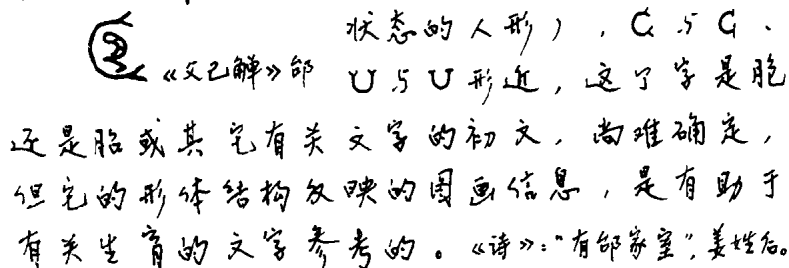 状态的人形），C与G、
《父己觯》邰 U与U形近，这个字是胞
还是胎或其它有关文字的初文，尚难确定，
但它的形体结构反映的图画信息，是有助于
有关生育的文字参考的。《诗》："有邰家室"，姜姓后。